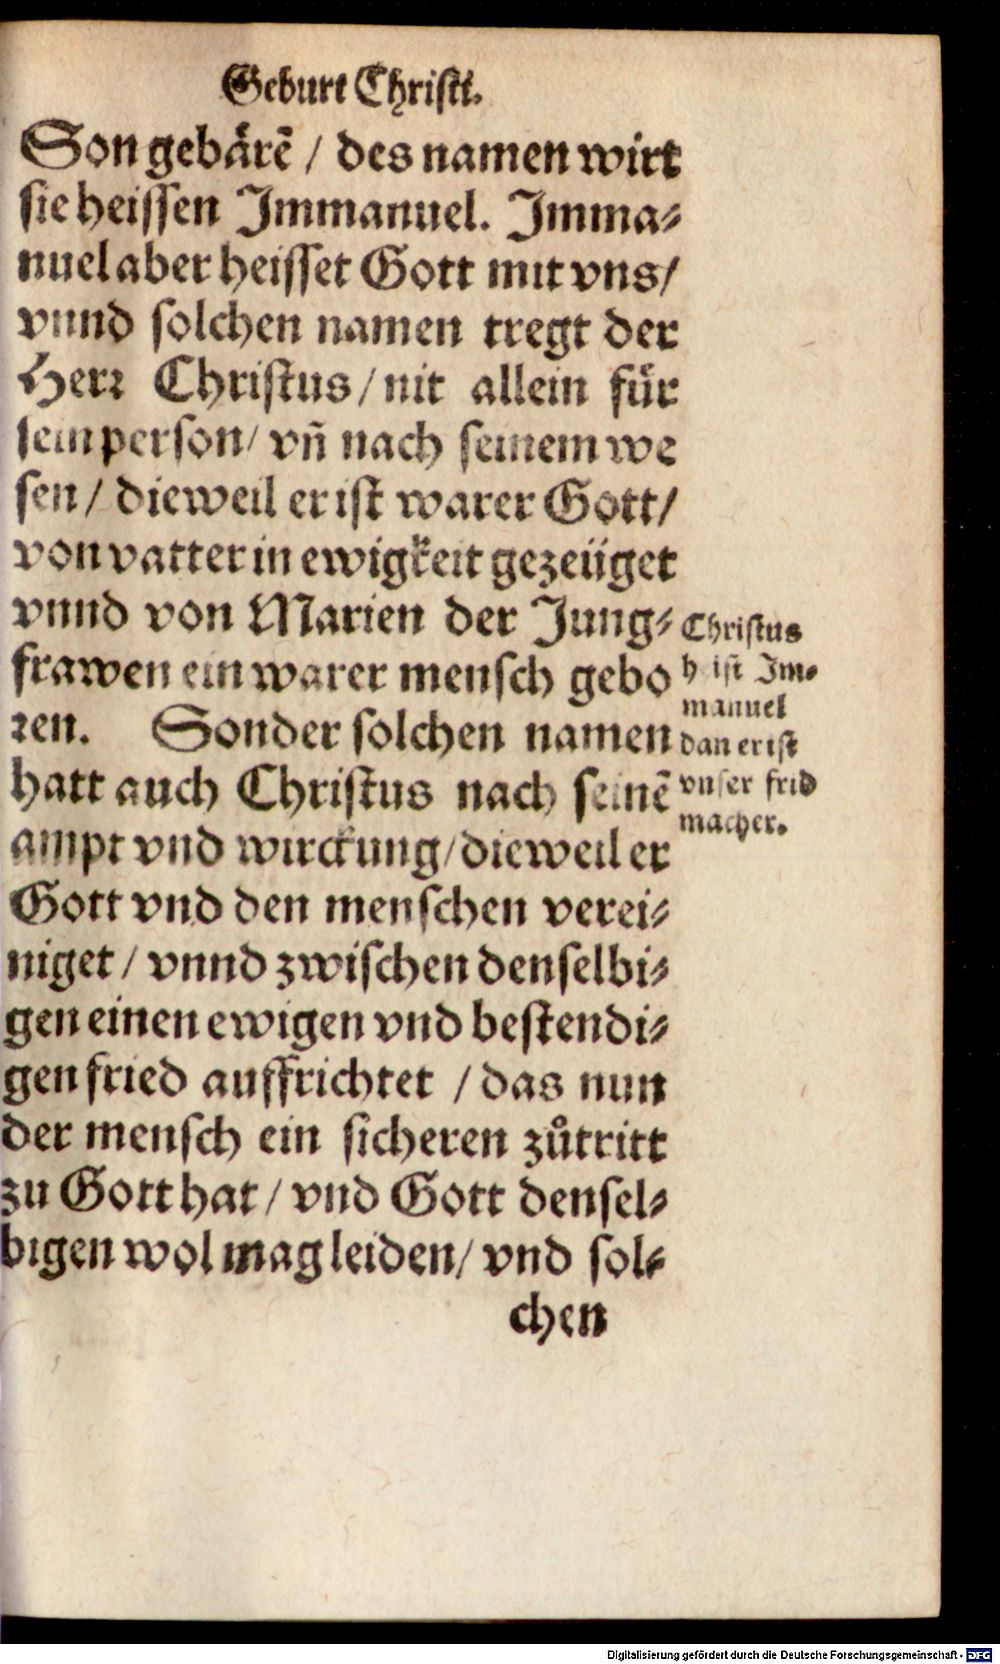 Geburt Christi.
Son gebärẽ / des namen wirt
sie heissen Immanuel. Imma⸗
nuel aber heisset Gott mit vns/
vnnd solchen namen tregt der
Herr Christus / nit allein für
sein person/ vñ nach seinem we
sen / dieweil er ist warer Gott/
von vatter in ewigkeit gezeüget
vnnd von Marien der Jung⸗
frawen ein warer mensch gebo
ren. Sonder solchen namen
hatt auch Christus nach seinẽ
ampt vnd wirckung/dieweil er
Gott vnd den menschen verei⸗
niget / vnnd zwischen denselbi⸗
gen einen ewigen vnd bestendi⸗
gen fried auffrichtet / das nun
der mensch ein sicheren zůtritt
zu Gott hat / vnd Gott densel⸗
bigen wol mag leiden/ vnd sol⸗
chen
Christus
h ist Im⸗
manuel
dan er ist
vnser frid
macher.
Digitalisierung gefördert durch die Deutsche Forschungsgemeinschaft - DFG